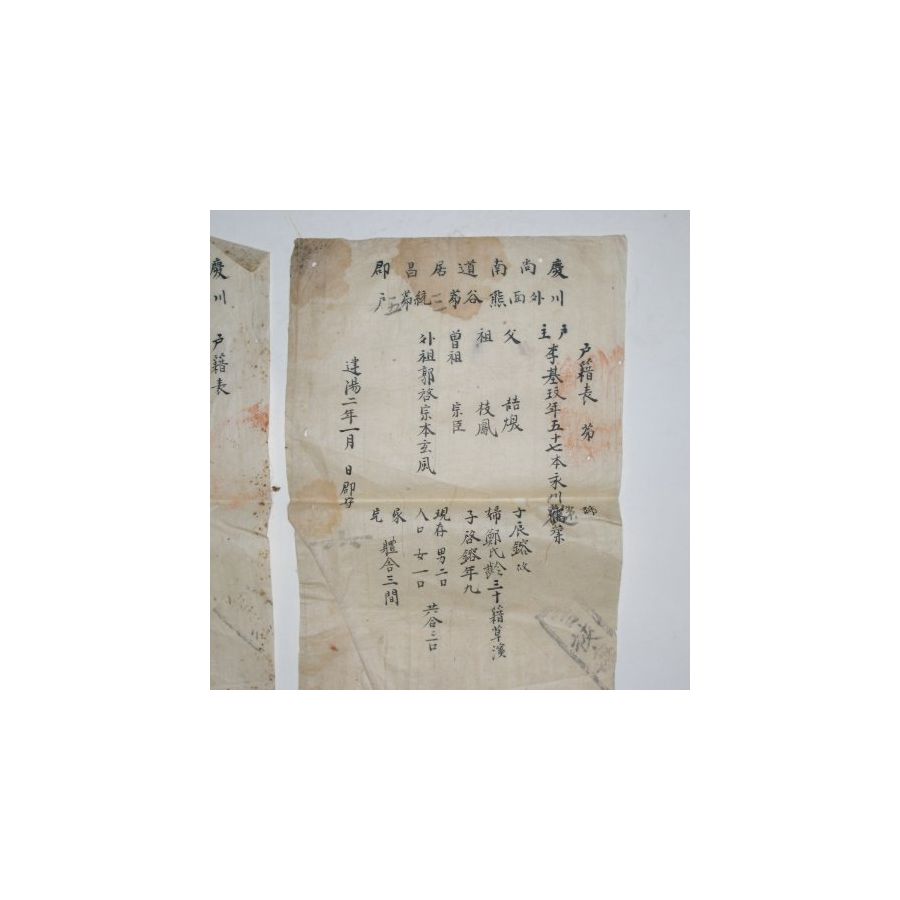 慶尙南道居昌郡
川外面熊谷第三統第五戶
戶籍表 第 號
戶主 李基玟年五十七本永川
父 喆煥
祖 枝鳳
曾祖 宗臣
外祖郭啓宗本玄風
建陽二年一月 日 郡守
子辰鎔故
婦鄭氏齡三十籍草溪
子啓鎔年九
現存 男二口
人口 女一口
共合三口
家 體舍三間
慶
川
戶籍表